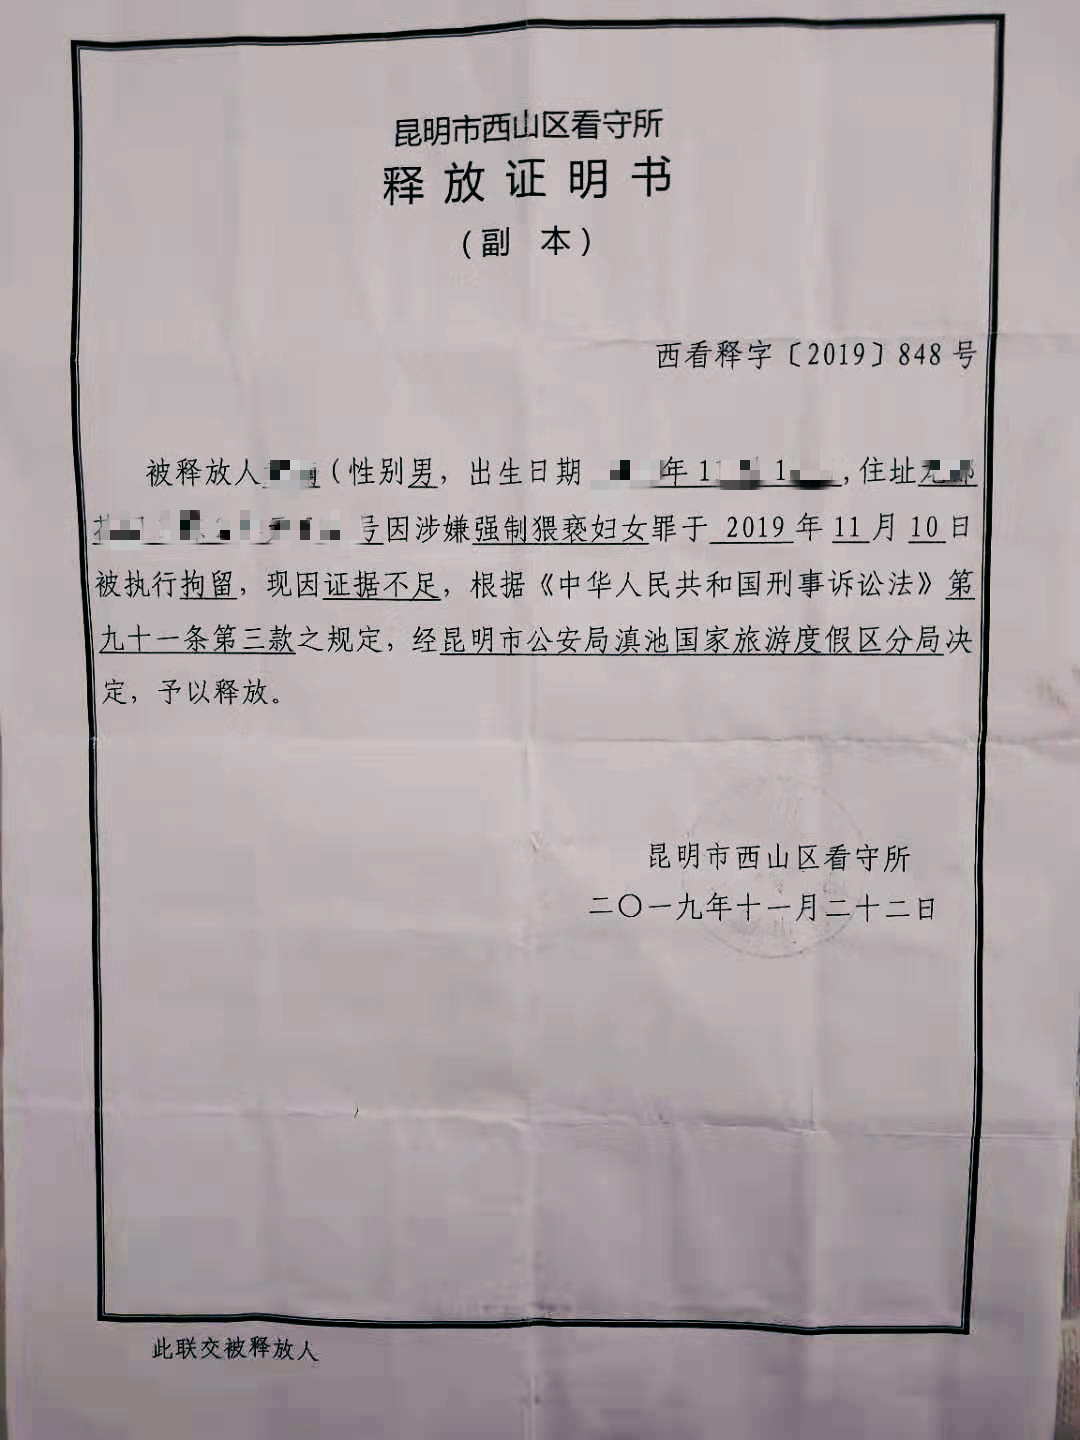 昆明市西山区看守所
释放证明书
（副 本）
西看释字〔2019〕848 号
被释放人（性别男，出生日期 年11 1 ，住址
号因涉嫌强制猥亵妇女罪于 2019 年 11 月 10 日
被执行拘留，现因证据不足，根据《中华人民共和国刑事诉讼法》第
九十一条第三款之规定，经昆明市公安局滇池国家旅游度假区分局决
定，予以释放。
昆明市西山区看守所
二〇一九年十一月二十二日
此联交被释放人